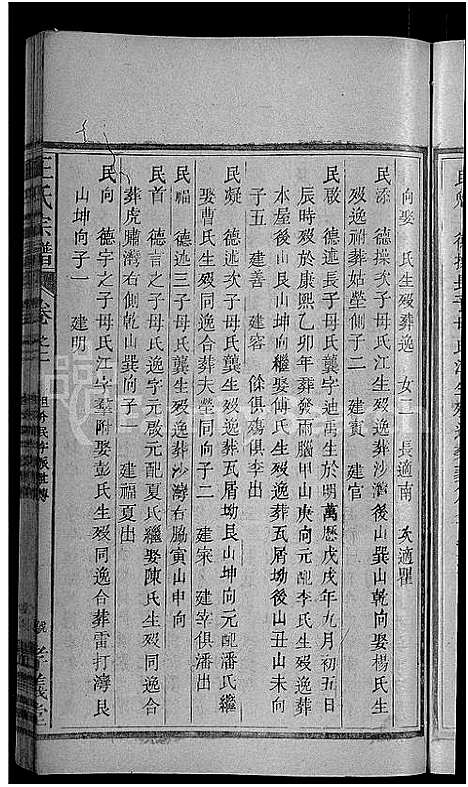 向娶 氏生殁葬逸 女二 長適南 次適瞿
民添 德操次子母氏江生殁葬沙灣後山巽山乾向娶楊氏生
殁逸祔葬姑塋側子二 建賓 建官
民啟 德連長子母氏龔字迪禹生於明萬歷戊戌年九月初五日
辰時殁於康熙乙卯年葬發雨腦甲山庚向元配李氏生殁逸葬
本屋後山艮山坤向繼娶傅氏生殁葬瓦屑坳後山丑山未向
子五 建善 建容 餘俱殤俱李出
民凝 德述次子母氏龔生殁逸葬瓦屑坳艮山坤向元配潘氏繼
娶曹氏生殁同逸合葬大塋同向子二 建寀 建宰俱潘出
民福 德述三子母氏龔生殁逸葬沙灣右脇寅山申向
民首 德言之子母氏逸字元啟元配夏氏繼娶陳氏生殁同逸合
葬虎獅灣右側乾山巽向子一 建福夏出
民向 德宇之子母氏江字羣附娶彭氏生殁同逸合葬雷打灣艮
山坤向子一 建明
王氏宗譜 卷之二